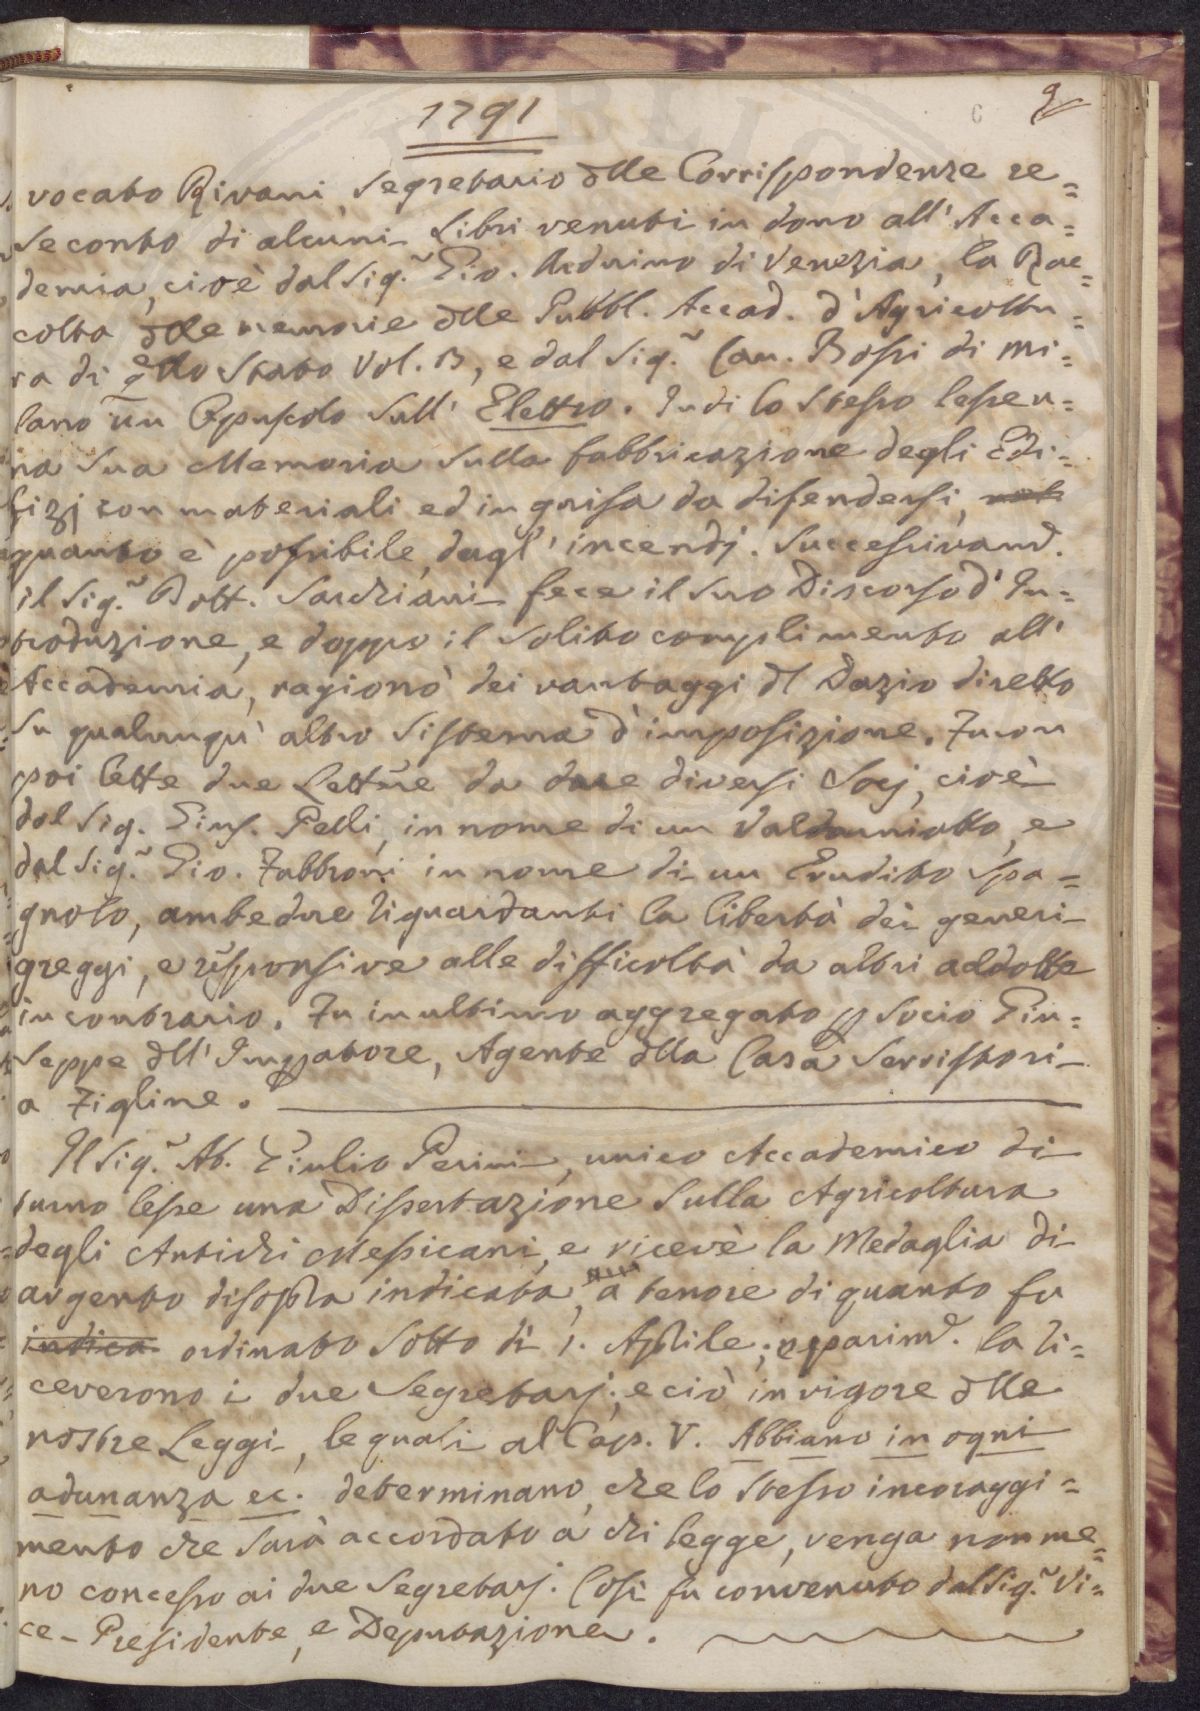 1791
9
vocato Rivani, Segretario dlle Corrispondenze re=
se conto di alcuni Libri venuti in dono all' Acca=
demia, cioè dal Sig.r Gio. Arduino di Venezia, la Rac=
colta dlle memorie dlle Pubbl. Accad. d'Agricoltu=
ra di qllo Stato Vol. 13, e dal Sig.r Cav. Bossi di Mi=
lano un Opuscolo sull' Elettro. Indi lo stesso lesse u=
na sua Memoria sulla fabbricazione degli Edi=
fizj con materiali ed in guisa da difendersi,
quanto è possibile, dagl' incendj. Successivamd.
il Sig.r Dott. Sarchiani fece il suo Discorso d' In=
troduzione, e doppo il solito complimento all'
Accademia, ragionò dei vantaggi dl Dazio diretto
su qualunqu' altro sistema d'imposizione. Furon
poi lette due Letture da due diversi Socj, cioè
dal Sig. Gius. Pelli, in nome di un Valdarniotto, e
dal Sig.r Gio. Fabbroni in nome di un Erudito Spa=
gnolo, ambedue riguardanti la libertà dei generi
greggi, e responsive alle difficoltà da altri addotte
in contrario. Fu in ultimo aggregato p Socio Giu=
seppe dll' Impatore, Agente dlla Casa Serristori
a Figline.
Il Sig.r Ab. Giulio Perini, unico Accademico di
turno lesse una Dissertazione sulla Agricoltura
degli Antichi Messicani, e ricevè la Medaglia di
argento disopra indicata, a tenore di quanto fu
indica ordinato sotto dì 1. Aprile; e parimd. la ri=
ceverono i due Segretarj; e ciò in vigore dlle
nostre Leggi, le quali al Cap. V. Abbiano in ogni
adunanza ec. determinano, che lo stesso incoraggi=
mento che sarà accordato a chi legge, venga non me=
no concesso ai due Segretarj. Così fu convenuto dal Sig.r Vi=
ce-Presidente, e Deputazione.